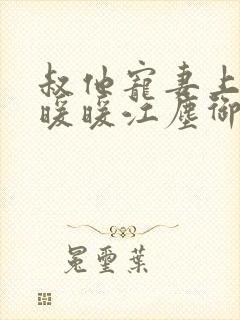 叔他寵妻上
暖暖江塵御
冕璽葉